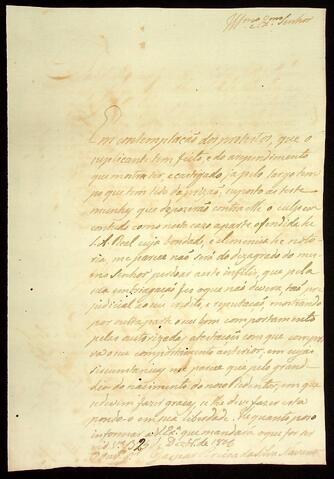 Illmo Exmo Senhor
Em contemplação dos protestos, que o
suplicante tem feito, e do arrependimento
que mostra ter, e castigado, ja pelo largo tem
po que tem tido de prizão, suposto as teste
munhas que depozerão contra elle o culpem
contudo como neste cazo a parte ofendida he
S. A. Real cuja bondade, e clemencia he noto
ria, me parece não será do dezagrado do mes
mo Senhor perdoar a este infeliz, que pela
sua fez o que não devera tão pre
judicial a seu credito e reputação, mostrando
por outra parte o seu bom comportamento
pelas autorizadas atestações com que compro
va o seu comportamento anterior, em cujas
circumstancias me parece que pelo gran
de dia do nascimento do
se devem fazer graças, se lhe dê por esta
pondo-o em sua liberdade. He quanto posso
informar a V. Exa. que mandará o que for ser
vido 32 de 1806
da Silva